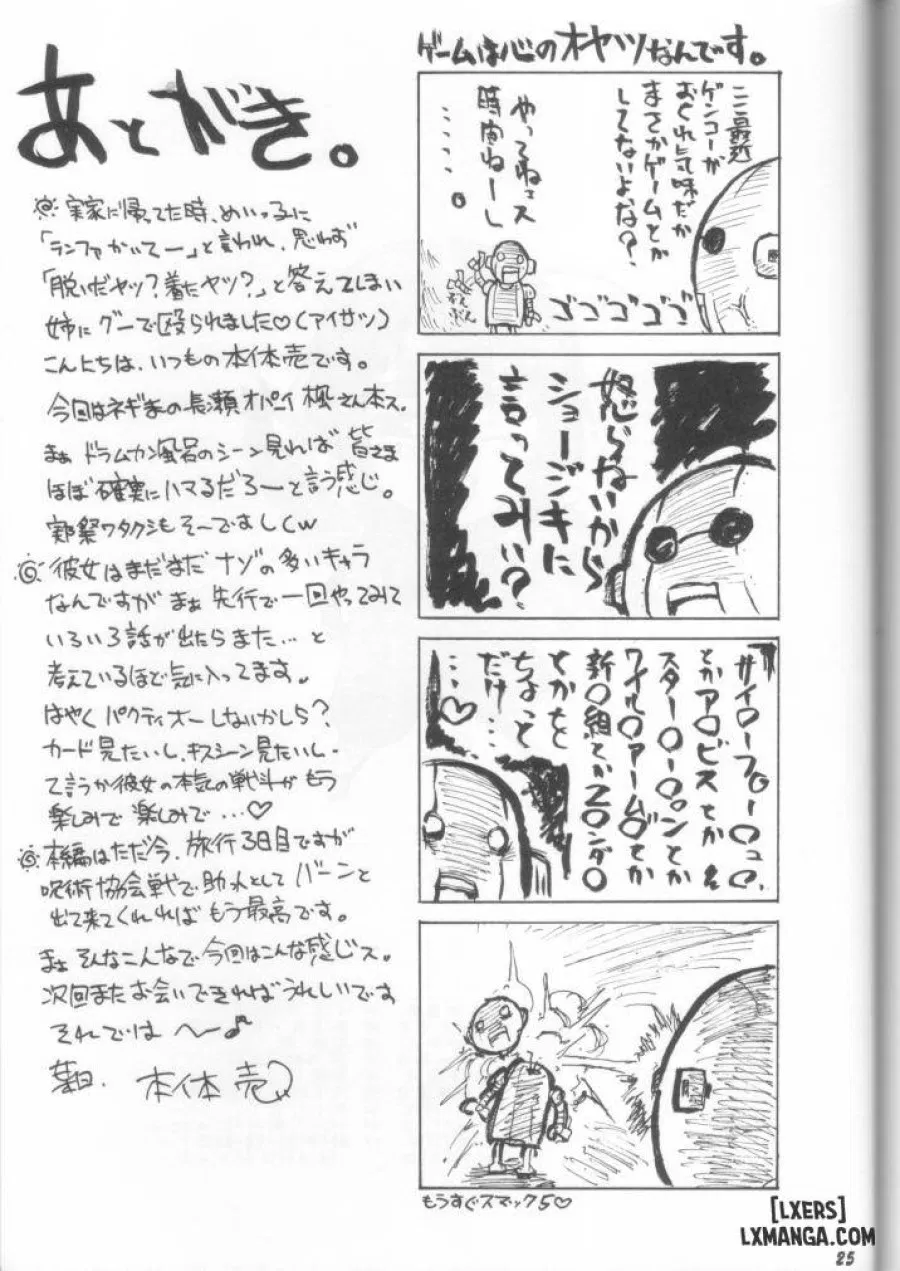 あとがき。
実家に帰ってた時、めいっ子に
「ランファかいてー」と言われ、思わず
「脱いだヤツ?着たヤツ?」と答えてしまい
姉にグーで殴られました♡(アイサツ)
こんにちは、いつもの本体売です。
今回はネギまの長瀬オパイ楓さん本ス。
まぁドラムカン風呂のシーン見れば皆さま
ほぼ確実にハマるだろーと言う感じ。
実際ワタクシもそーですしw
彼女はまだまだナゾの多いキャラ
なんですがまぁ先行で一回やってみて
いろいろ話が出たらまた…と
考えているほど気に入ってます。
はやくパクティオーしないかしら?
カード見たいし、キスシーン見たいし、
て言うか彼女の本気の戦斗がもう
楽しみで楽しみで…♡
本編はただ今、旅行3日目ですが
呪術協会戦で助っ人としてバーンと
出て来てくれればもう最高です。
まぁそんなこんなで今回はこんな感じス。
次回またお会いできればうれしいです
それでは〜♪
本体売
ゲームは心のオヤツなんです。
ここ最近
ゲンコーが
おくれ気味だが
まさかゲームとか
してないよな?
やってねェス
時間ねーし
……。
ゴゴゴゴゴ
怒らないから
ショージキに
言ってみぃ?
サイ〇ーフ〇ー〇コ〇、
とかア〇ビスとか
スター〇ー〇ンとか
ワイル〇アーム〇とか
新〇組とかZ〇ンダ〇
とかをちょっと
だけ…
…♡
もうすぐスマック5♡
[LXERS]
LXMANGA.COM
25